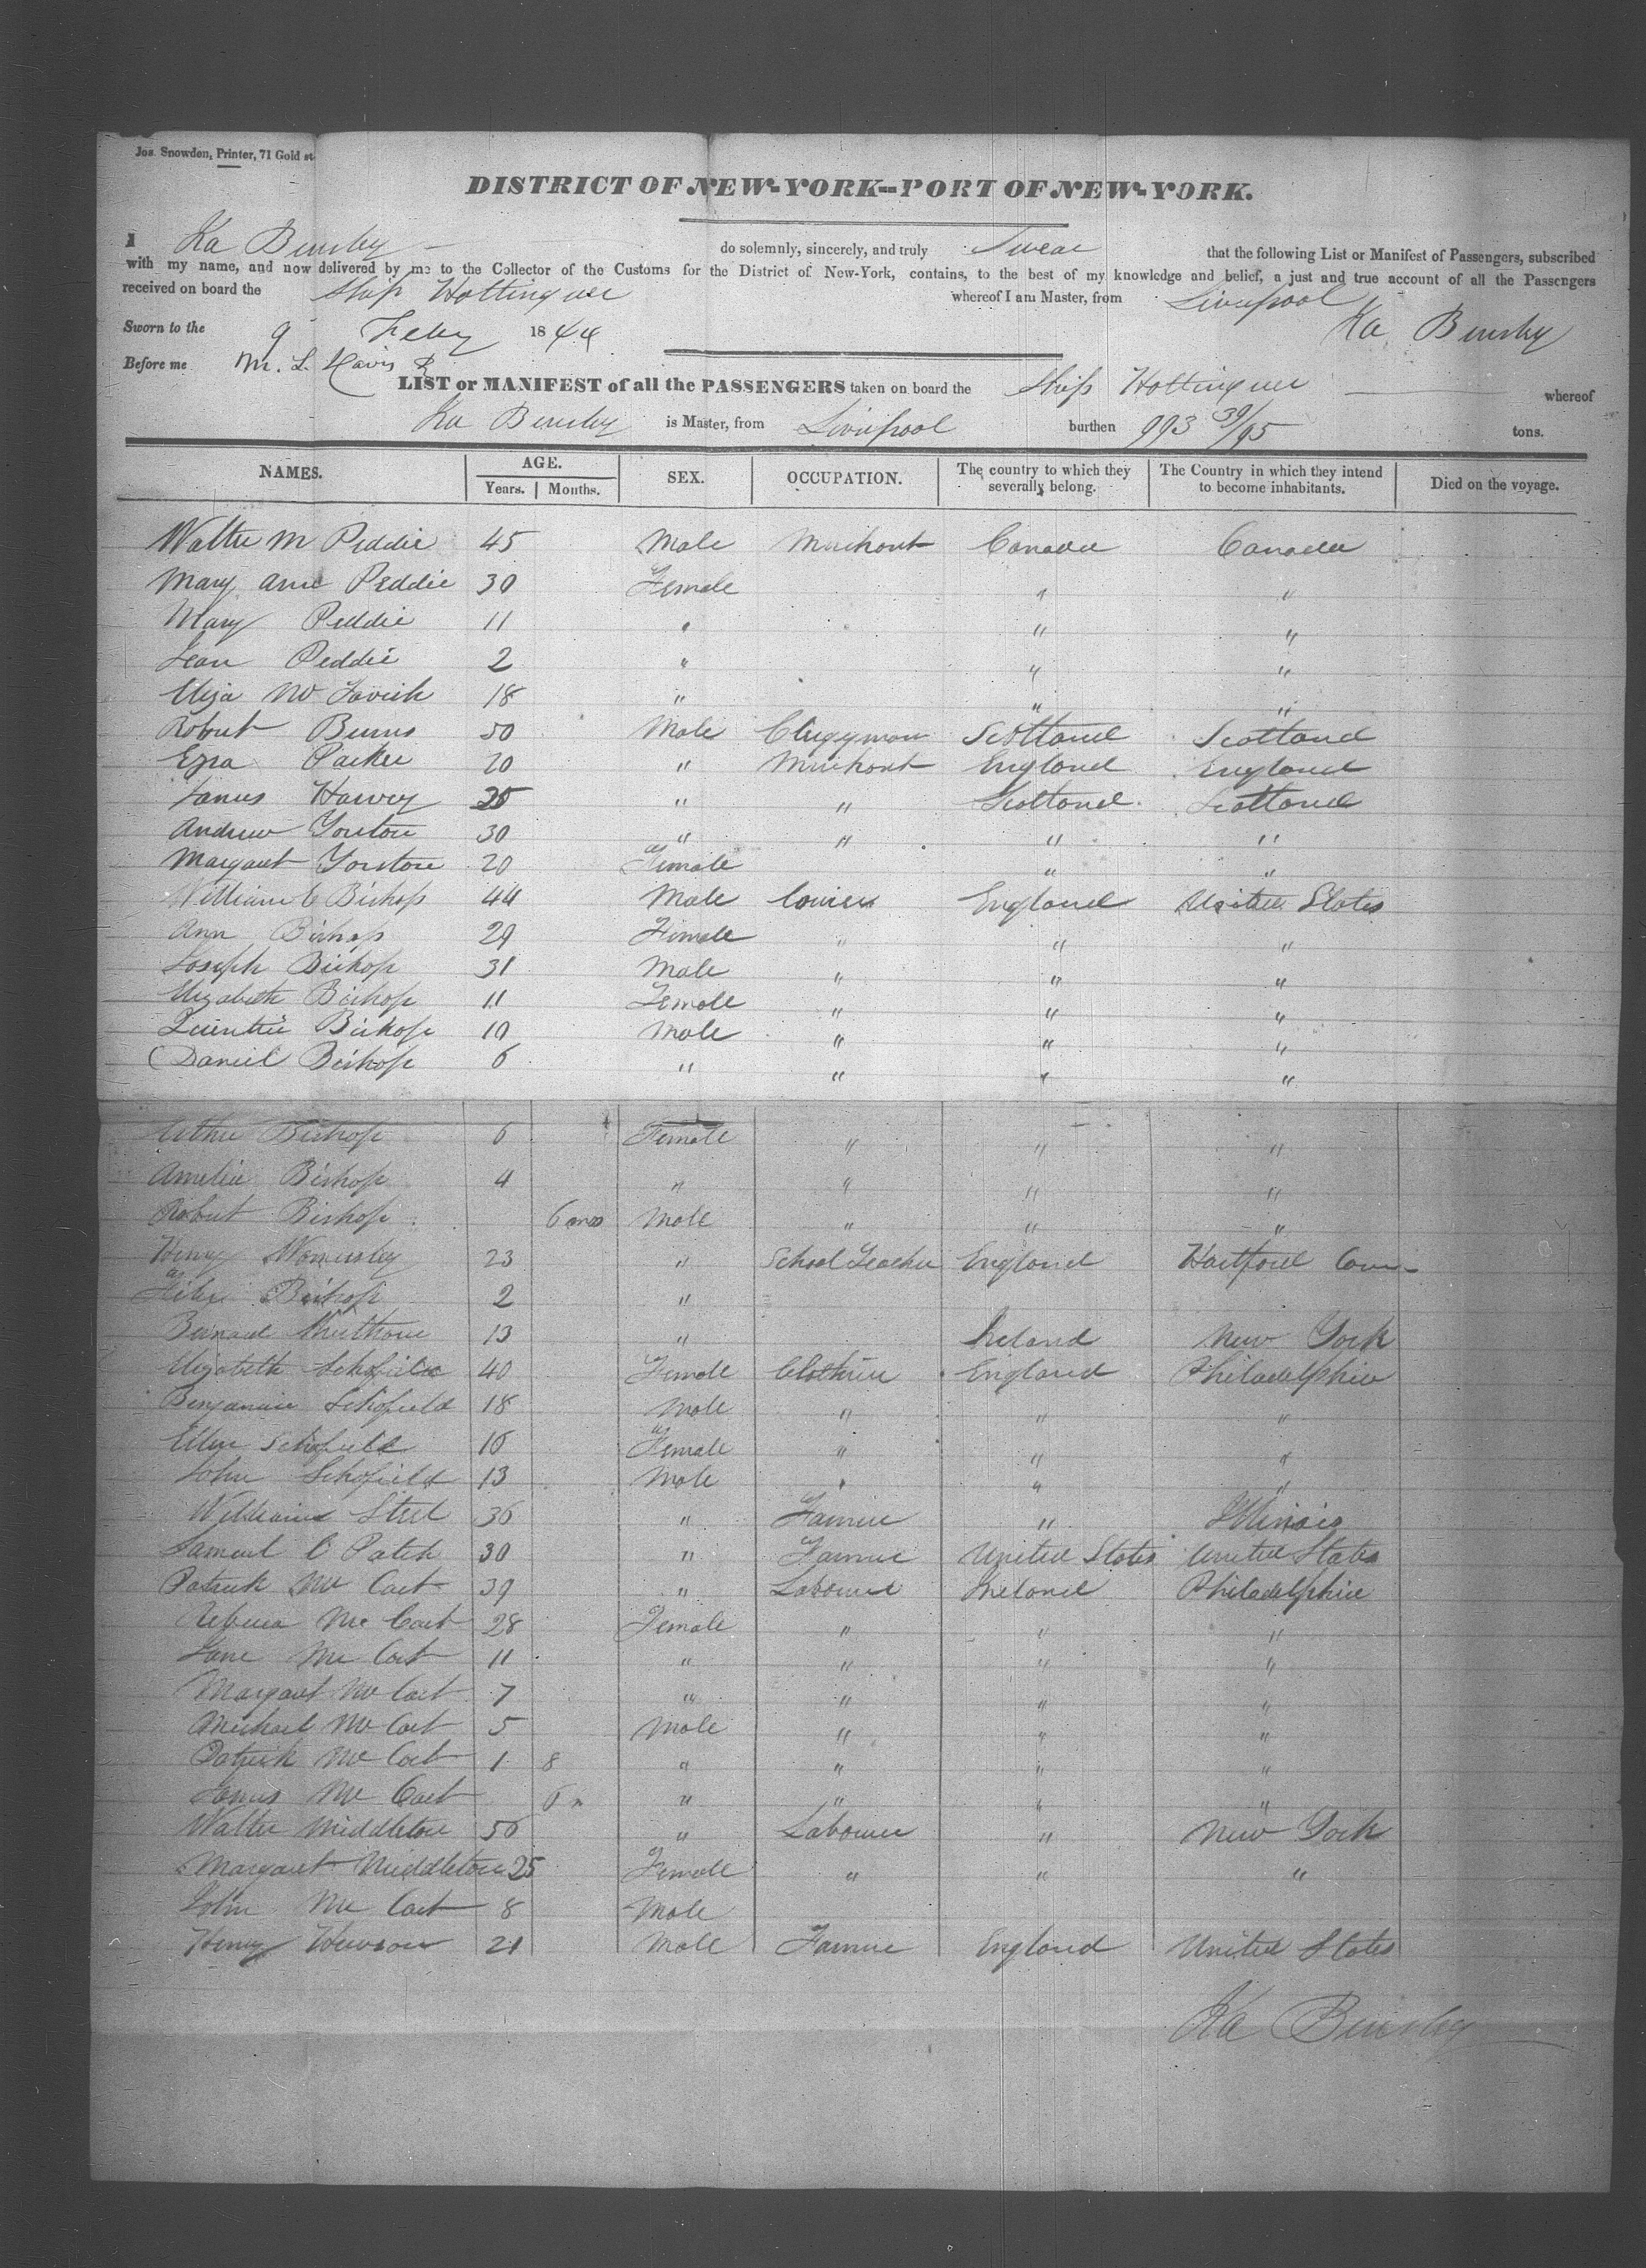 Jos. Snowden, Printer, 71 Gold st
DISTRICT OF NEW-YORK--PORT OF NEW-YORK.
I Ira Bursley do solemnly, sincerely, and truly Swear that the following List or Manifest of Passengers, subscribed
with my name, and now delivered by me to the Collector of the Customs for the District of New-York, contains, to the best of my knowledge and belief, a just and true account of all the Passengers
received on board the Ship Hottinguer whereof I am Master, from Liverpool
Sworn to the 9 Feby 1844 Ira Bursley
Before me M. L. Davis
LIST or MANIFEST of all the PASSENGERS taken on board the Ship Hottinguer whereof
Ira Bursley is Master, from Liverpool burthen 993 39/95 tons.
NAMES. AGE. Years. Months. SEX. OCCUPATION. The country to which they severally belong. The Country in which they intend to become inhabitants. Died on the voyage.
Walter M Peddie 45 Male Merchant Canada Canada
Mary Ann Peddie 30 Female " "
Mary Peddie 11 " " "
Jean Peddie 2 " " "
Eliza McTavish 18 " " "
Robert Burns 50 Male Clergyman Scotland Scotland
Ezra Parker 20 " Merchant England England
James Harvey 25 " " Scotland Scotland
Andrew Yorston 30 " " " "
Margaret Yorston 20 Female " "
William C Bishop 44 Male England United States
Ann Bishop 29 Female " " "
Joseph Bishop 31 Male " " "
Elizabeth Bishop 11 Female " " "
Bishop 10 Male " " "
Daniel Bishop 6 " " " "
Bishop 6 Female " " "
Amelia Bishop 4 " " " "
Robert Bishop 6 mos Male " " "
Henry Womersley 23 " School Teacher England Hartford Conn
Bishop 2 "
Bernard 13 " Ireland New York
Elizabeth Schofield 40 Female Clothier England Philadelphia
Benjamin Schofield 18 Male " " "
Ellen Schofield 16 Female " " "
John Schofield 13 Male " " "
William Steel 36 " Farmer " Illinois
Samuel C Patch 30 " Farmer United States United States
Patrick McCart 39 " Labourer Ireland Philadelphia
Rebecca McCart 28 Female " " "
Jane McCart 11 " " " "
Margaret McCart 7 " " " "
Michael McCart 5 Male " " "
Patrick McCart 1 8 " " " "
James McCart 6 m " " " "
Walter Middleton 56 " Labourer " New York
Margaret Middleton 25 Female " " "
John McCart 8 Male
Henry Hewson 21 Male Farmer England United States
Ira Bursley